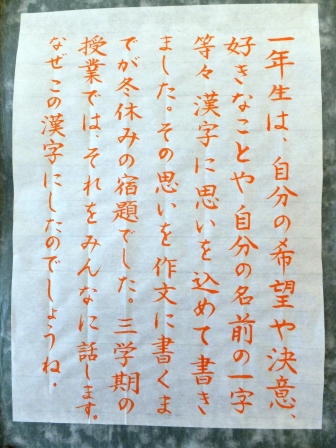 一年生は、自分の希望や決意、
好きなことや自分の名前の一字
等々漢字に思いを込めて書き
ました。その思いを作文に書くま
でが冬休みの宿題でした。三学期の
授業では、それをみんなに話します。
なぜこの漢字にしたのでしょうね。